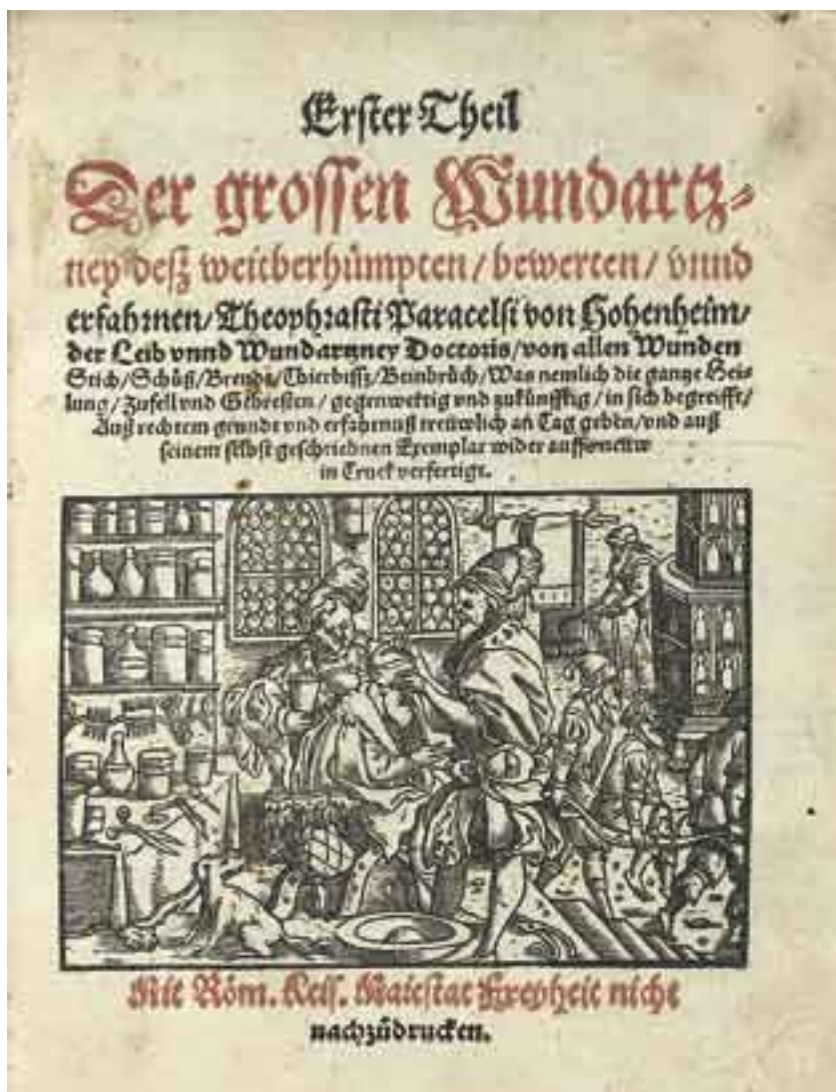 Erster Theil
Der grossen Wundartz-
ney deß weitberhümpten / bewerten / vnnd
erfahrnen / Theophrasti Paracelsi von Hohenheim /
der Leib vnnd Wundartzney Doctoris / von allen Wunden
Stich / Schüß / Brendt / Thierbissz / Beinbrüch / Was nemlich die gantze Hei-
lung / Zufell vnd Gebresten / gegenwertig vnd zukünfftig / in sich begreifft /
Auß rechtem grundt vnd erfahrnuß trewlich an Tag geben / vnd auß
seinem selbst geschriebnen Exemplar wider auffs
in Truck verfertigt.
Mit Röm. Keis. Maiestat Freyheit nicht
nachzůdrucken.